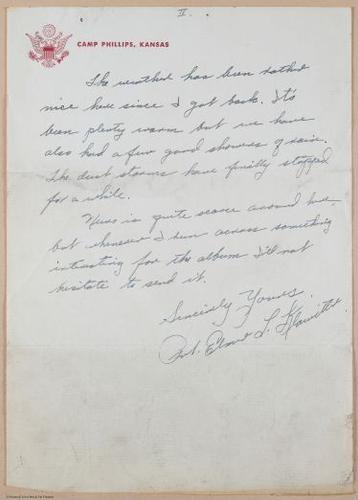 II.
CAMP PHILLIPS, KANSAS
The weather has been rather
nice here since I got back. It's
been plenty warm but we have
also had a few good showers of rain.
The dust storms have finally stopped
for a while.
News is quite scarce around here
but whenever I run across something
interesting for the album I'll not
hesitate to send it.
Sincerely Yours
Pvt. Elmer L. K.